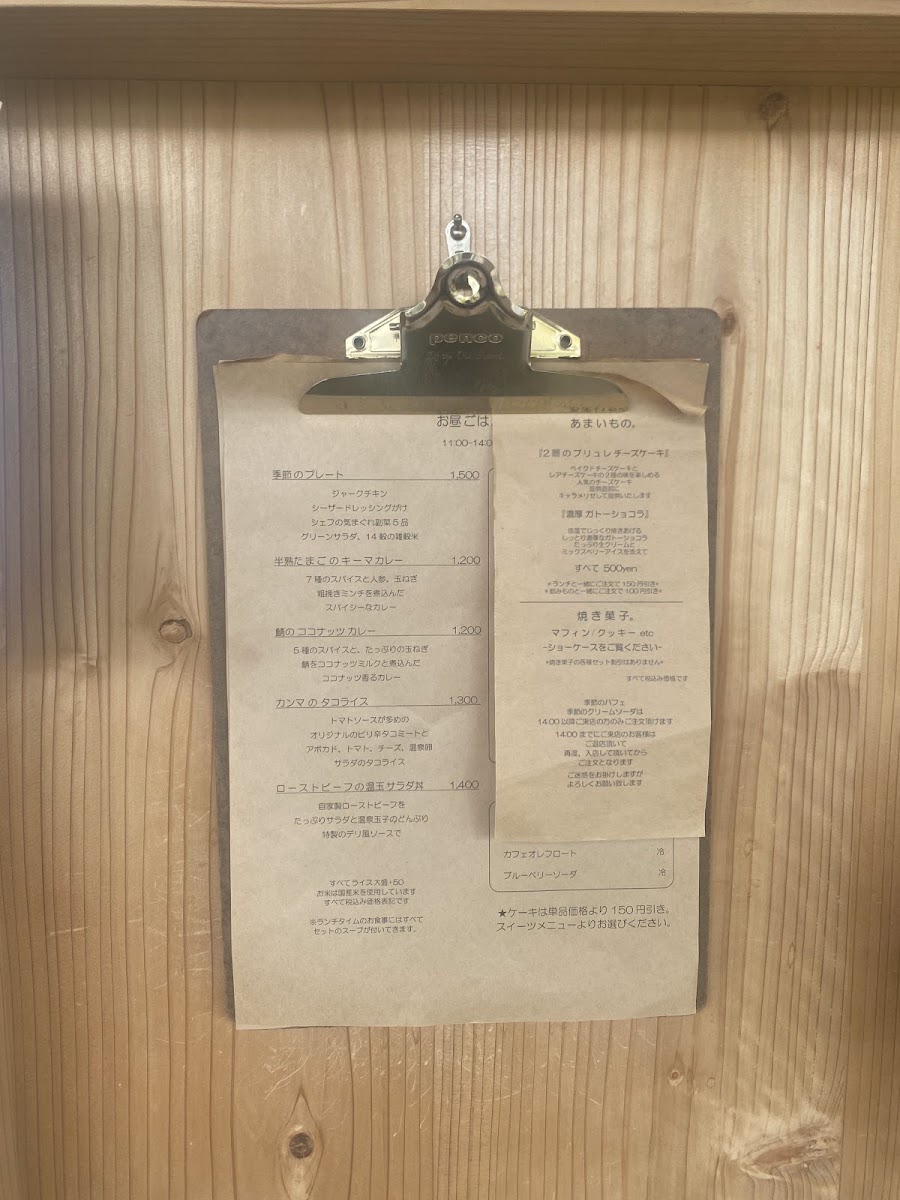 penco
お昼ごは
11:00-14:0
季節のプレート 1,500
ジャークチキン
シーザードレッシングがけ
シェフの気まぐれ副菜5品
グリーンサラダ、14穀の雑穀米
半熟たまごのキーマカレー 1,200
7種のスパイスと人参、玉ねぎ
粗挽きミンチを煮込んだ
スパイシーなカレー
鯖のココナッツカレー 1,200
5種のスパイスと、たっぷりの玉ねぎ
鯖をココナッツミルクと煮込んだ
ココナッツ香るカレー
カンマのタコライス 1,300
トマトソースが多めの
オリジナルのピリ辛タコミートと
アボカド、トマト、チーズ、温泉卵
サラダのタコライス
ローストビーフの温玉サラダ丼 1,400
自家製ローストビーフを
たっぷりサラダと温泉玉子のどんぶり
特製のデリ風ソースで
すべてライス大盛+50
お米は国産米を使用しています
すべて税込み価格表記です
※ランチタイムのお食事にはすべて
セットのスープが付いてきます。
あまいもの。
『2層のブリュレチーズケーキ』
ベイクドチーズケーキと
レアチーズケーキの2種の味を楽しめる
人気のチーズケーキ
提供直前に
キャラメリゼして提供いたします
『濃厚 ガトーショコラ』
低温でじっくり焼きあげる
しっとり濃厚なガトーショコラ
たっぷり生クリームと
ミックスベリーアイスを添えて
すべて 500yen
*ランチと一緒にご注文で150円引き*
*飲みものと一緒にご注文で100円引き*
焼き菓子。
マフィン/クッキー etc
-ショーケースをご覧ください-
*焼き菓子の各種セット割引はありません*
すべて税込み価格です
季節のパフェ
季節のクリームソーダは
14:00以降ご来店の方のみご注文頂けます
14:00までにご来店のお客様は
ご退店頂いて
再度、入店して頂いてから
ご注文となります
ご迷惑をお掛けしますが
よろしくお願い致します
カフェオレフロート 冷
ブルーベリーソーダ 冷
★ケーキは単品価格より150円引き。
スイーツメニューよりお選びください。